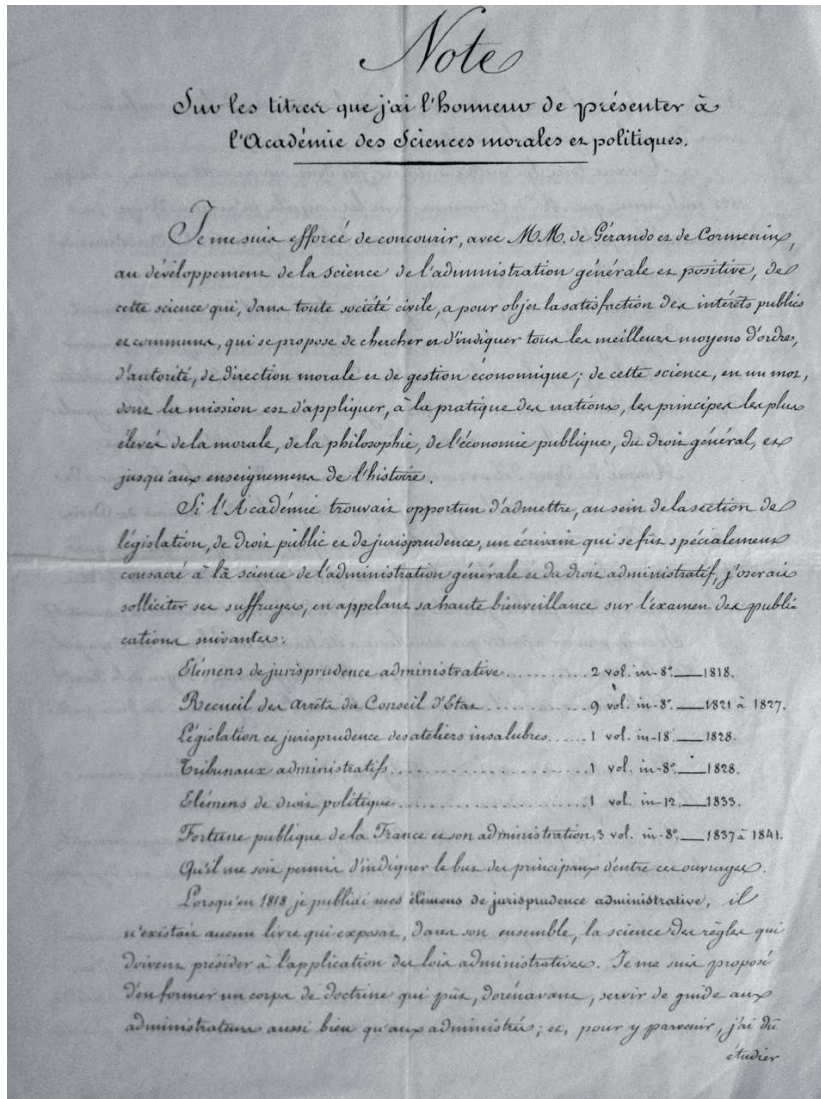 Note
Sur les titres que j'ai l'honneur de présenter à
l'Académie des Sciences morales et politiques.
Je me suis efforcé de concourir, avec MM. de Gérando et de Cormenin,
au développement de la science de l'administration générale et positive, de
cette science qui, dans toute société civile, a pour objet la satisfaction des intérêts publics
et communs, qui se propose de chercher et d'indiquer tous les meilleurs moyens d'ordre,
d'autorité, de direction morale et de gestion économique; de cette science, en un mot,
dont la mission est d'appliquer, à la pratique des nations, les principes les plus
élevés de la morale, de la philosophie, de l'économie publique, du droit général, et
jusqu'aux enseignemens de l'histoire.
Si l'Académie trouvait opportun d'admettre, au sein de la section de
législation, de droit public et de jurisprudence, un écrivain qui se fût spécialement
consacré à la science de l'administration générale et du droit administratif, j'oserais
solliciter ses suffrages, en appelant sa haute bienveillance sur l'examen des publi-
cations suivantes:
Elémens de jurisprudence administrative.......... 2 vol. in-8° — 1818.
Recueil des Arrêts du Conseil d'Etat............ 9 vol. in-8° — 1821 à 1827.
Législation et jurisprudence des ateliers insalubres..... 1 vol. in-18 — 1828.
Tribunaux administratifs..................... 1 vol. in-8° — 1828.
Elémens de droit politique.................... 1 vol. in-12 — 1833.
Fortune publique de la France et son administration, 3 vol. in-8° — 1837 à 1841.
Qu'il me soit permis d'indiquer le but des principaux d'entre ces ouvrages.
Lorsqu'en 1818 je publiai mes élémens de jurisprudence administrative, il
n'existait aucun livre qui exposat, dans son ensemble, la science des règles qui
doivent présider à l'application des lois administratives. Je me suis proposé
d'en former un corps de doctrine qui pût, dorénavant, servir de guide aux
administrateurs aussi bien qu'aux administrés; et, pour y parvenir, j'ai dû
étudier